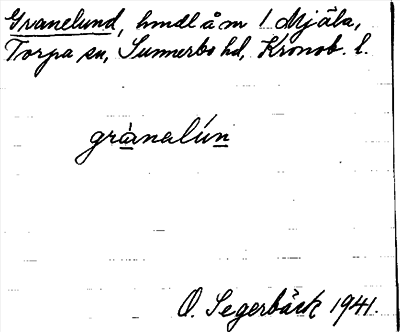 Granelund, hmdl å m 1 Mjäla,
Torpa sn, Sunnerbo hd, Kronob. l.
grànalún
O. Segerbäck 1941.